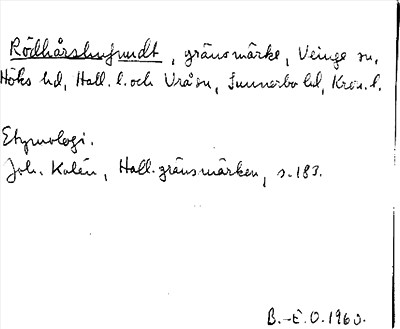 Rödhårshufvudt, gränsmärke, Veinge sn,
Höks hd, Hall. l. och Vrå sn, Sunnerbo hd, Kron. l.
Etymologi.
Joh. Kalén, Hall. gränsmärken, s. 183.
B.-E.O. 1960.